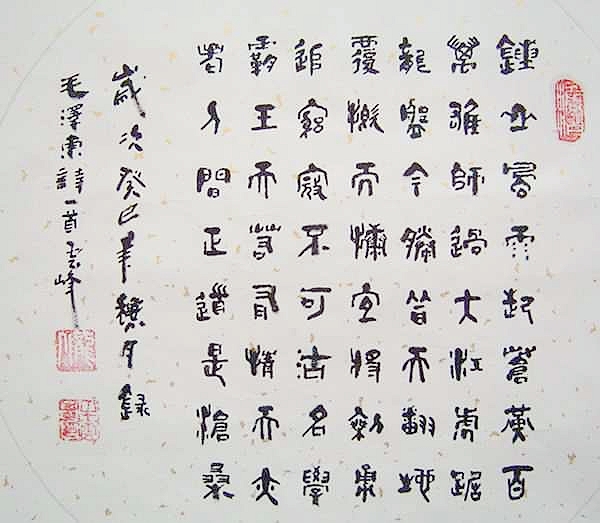 鍾山風雨起蒼黃百
萬雄師過大江虎踞
龍盤今勝昔天翻地
覆慨而慷宜將剩勇
追窮寇不可沽名學
霸王天若有情天亦
老人間正道是滄桑
歲次癸巳年月錄
毛澤東詩一首雲峰